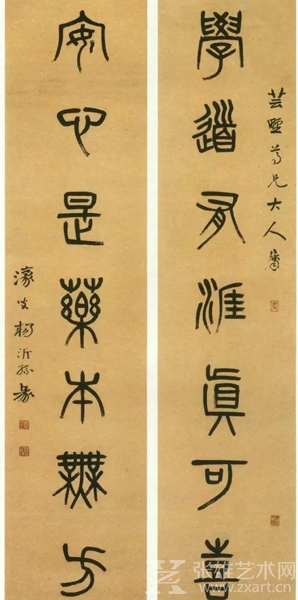 芸尊兄大人屬
學道有涯眞可喜
安心是藥本無方
濠叟楊沂孫篆
张雄艺术网
www.zxart.cn